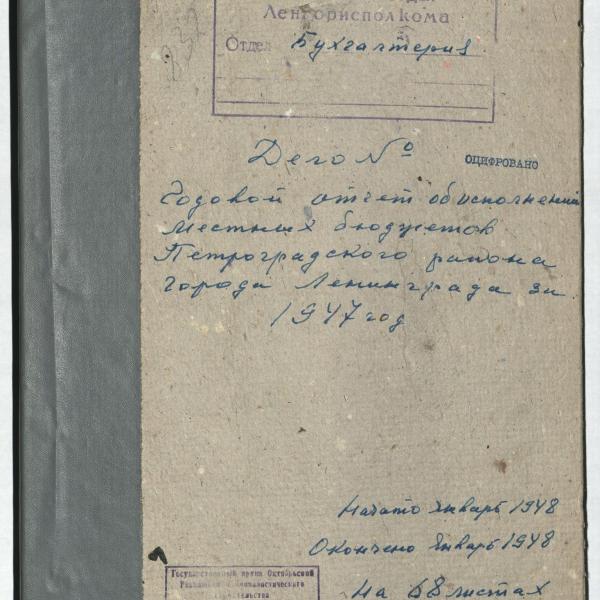 Ленгорисполкома
Отдел Бухгалтерия
232
Дело №
ОЦИФРОВАНО
Годовой отчет об исполнении
местных бюджетов
Петроградского района
города Ленинграда за
1947 год
Начато январь 1948
Окончено январь 1948
На 68 листах
Государственный архив Октябрьской
Революции и социалистического
строительства